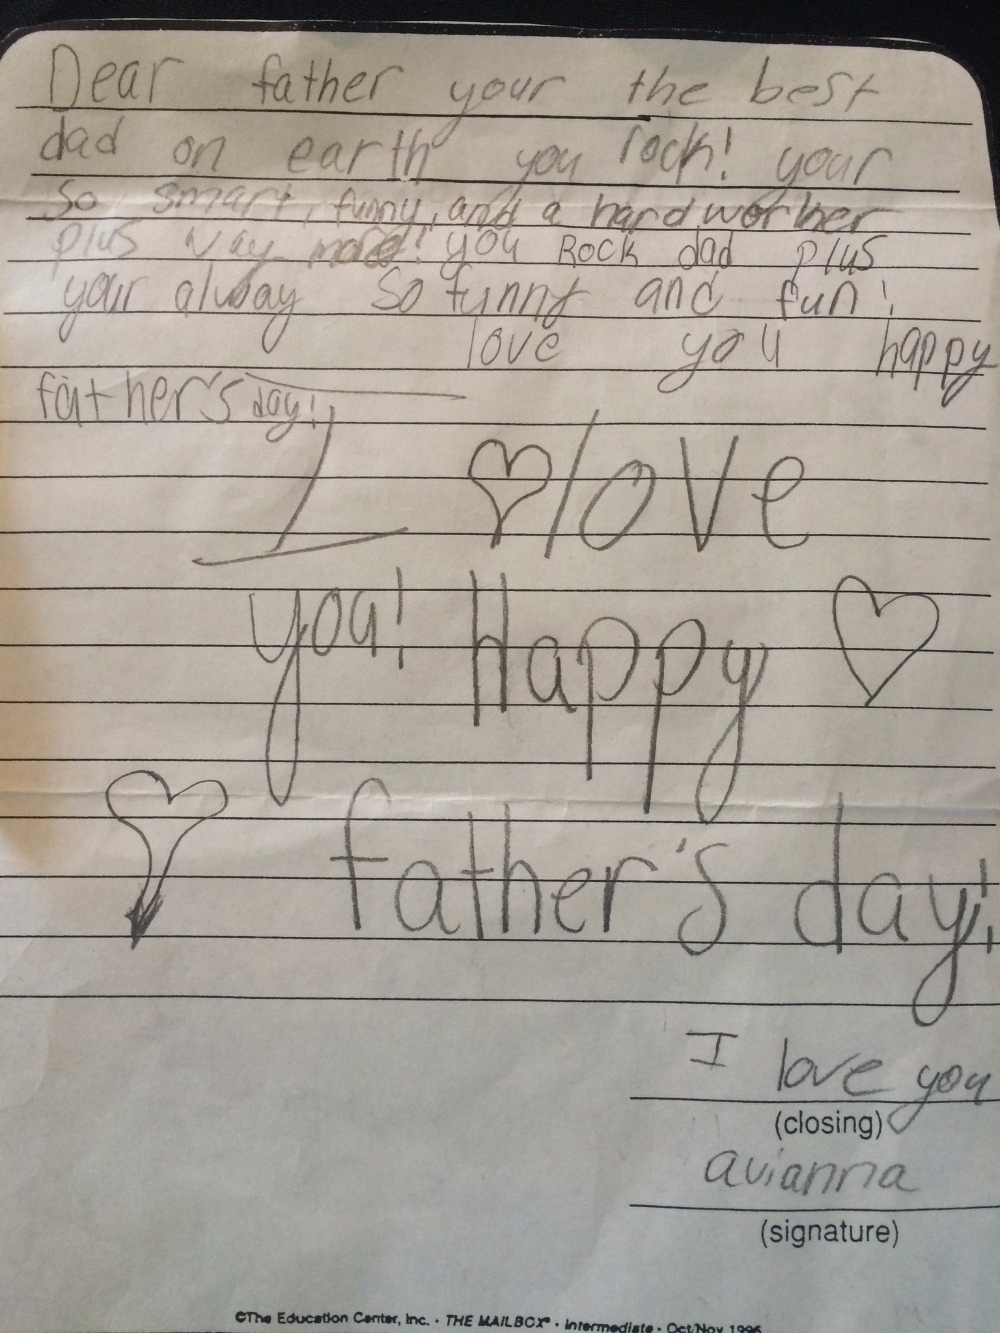 Dear father your the best
dad on earth you rock! your
So smart, funny, and a hard worker
plus way more! you Rock dad plus
your alway so funny and fun!
love you happy
father's day!
I love
you! Happy
father's day!
I love you
(closing)
avianna
(signature)
©The Education Center, Inc. • THE MAILBOX® • Intermediate • Oct/Nov 1996